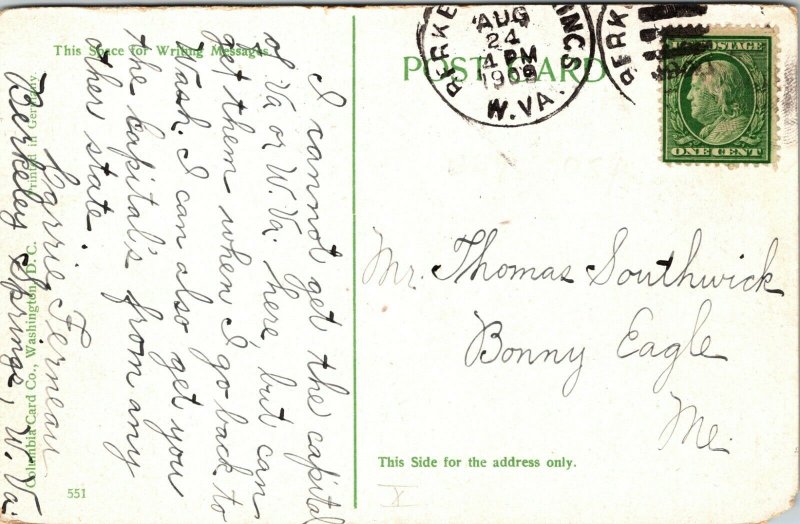 This Space for Writing Messages.
POST CARD
BERKE INGS
AUG
24
4 PM
1909
W.VA.
BERK
U.S. POSTAGE
ONE CENT
I cannot get the capital
of Va or W. Va. here, but can
get them when I go back to
Wash. I can also get you
the capital's from any
other state.
Carrie Ferneau
Berkeley Springs, W. Va.
Mr. Thomas Southwick
Bonny Eagle
Me.
This Side for the address only.
Columbia Card Co., Washington, D. C.
Printed in Germany.
551
X